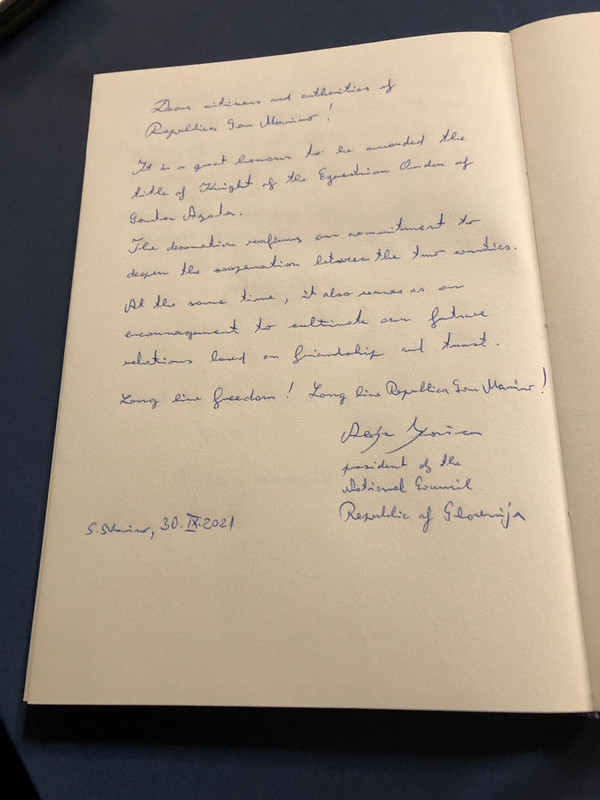 Dear citizens and authorities of
Republica San Marino!
It is a great honour to be awarded the
title of Knight of the Equestrian Order of
Santa Agata.
The decoration reafirms our commitment to
deepen the cooperation between the two counties.
At the same time, it also serves as an
encouragement to cultivate our future
relations based on friendship and trust.
Long live freedom! Long live Republica San Marino!
president of the
National Council
Republic of Slovenija
S. Marino, 30. IX. 2021